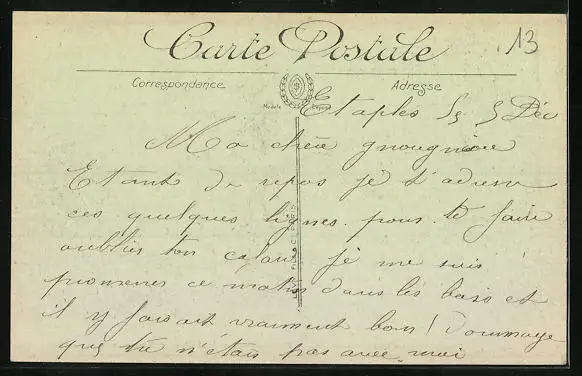 13
Carte Postale
Correspondance
Adresse
Modèle Déposé
Etaples Déc
Ma chère
Etant de repos je t'adresse
ces quelques lignes pour te faire
oublier ton je me suis
promener ce matin dans les bois et
il y faisait vraiment bon! Dommage
que tu n'étais pas avec moi